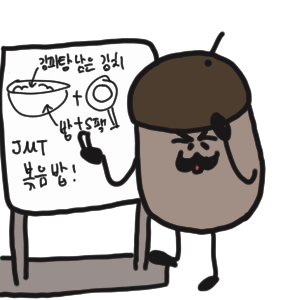 감자탕 남은 김치
+
밥+S팩
JMT
볶음밥!